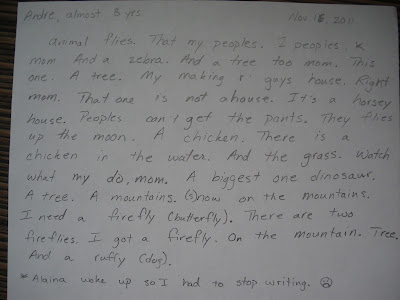 Andre, almost 3 yrs Nov 15, 2011
animal flies. That my peoples. I peoples, k
mom And a zebra. And a tree too mom. This
one. A tree. My making r guys house. Right
mom. That one is not a house. It's a horsey
house. Peoples can't get the paints. They flies
up the moon. A chicken. There is a
chicken in the water. And the grass. Watch
what my do, mom. A biggest one dinosaur.
A tree. A mountains. (s)now on the mountains.
I need a firefly (butterfly). There are two
fireflies. I got a firefly. On the mountain. Tree.
And a ruffy (dog).
* Alaina woke up so I had to stop writing. ☹